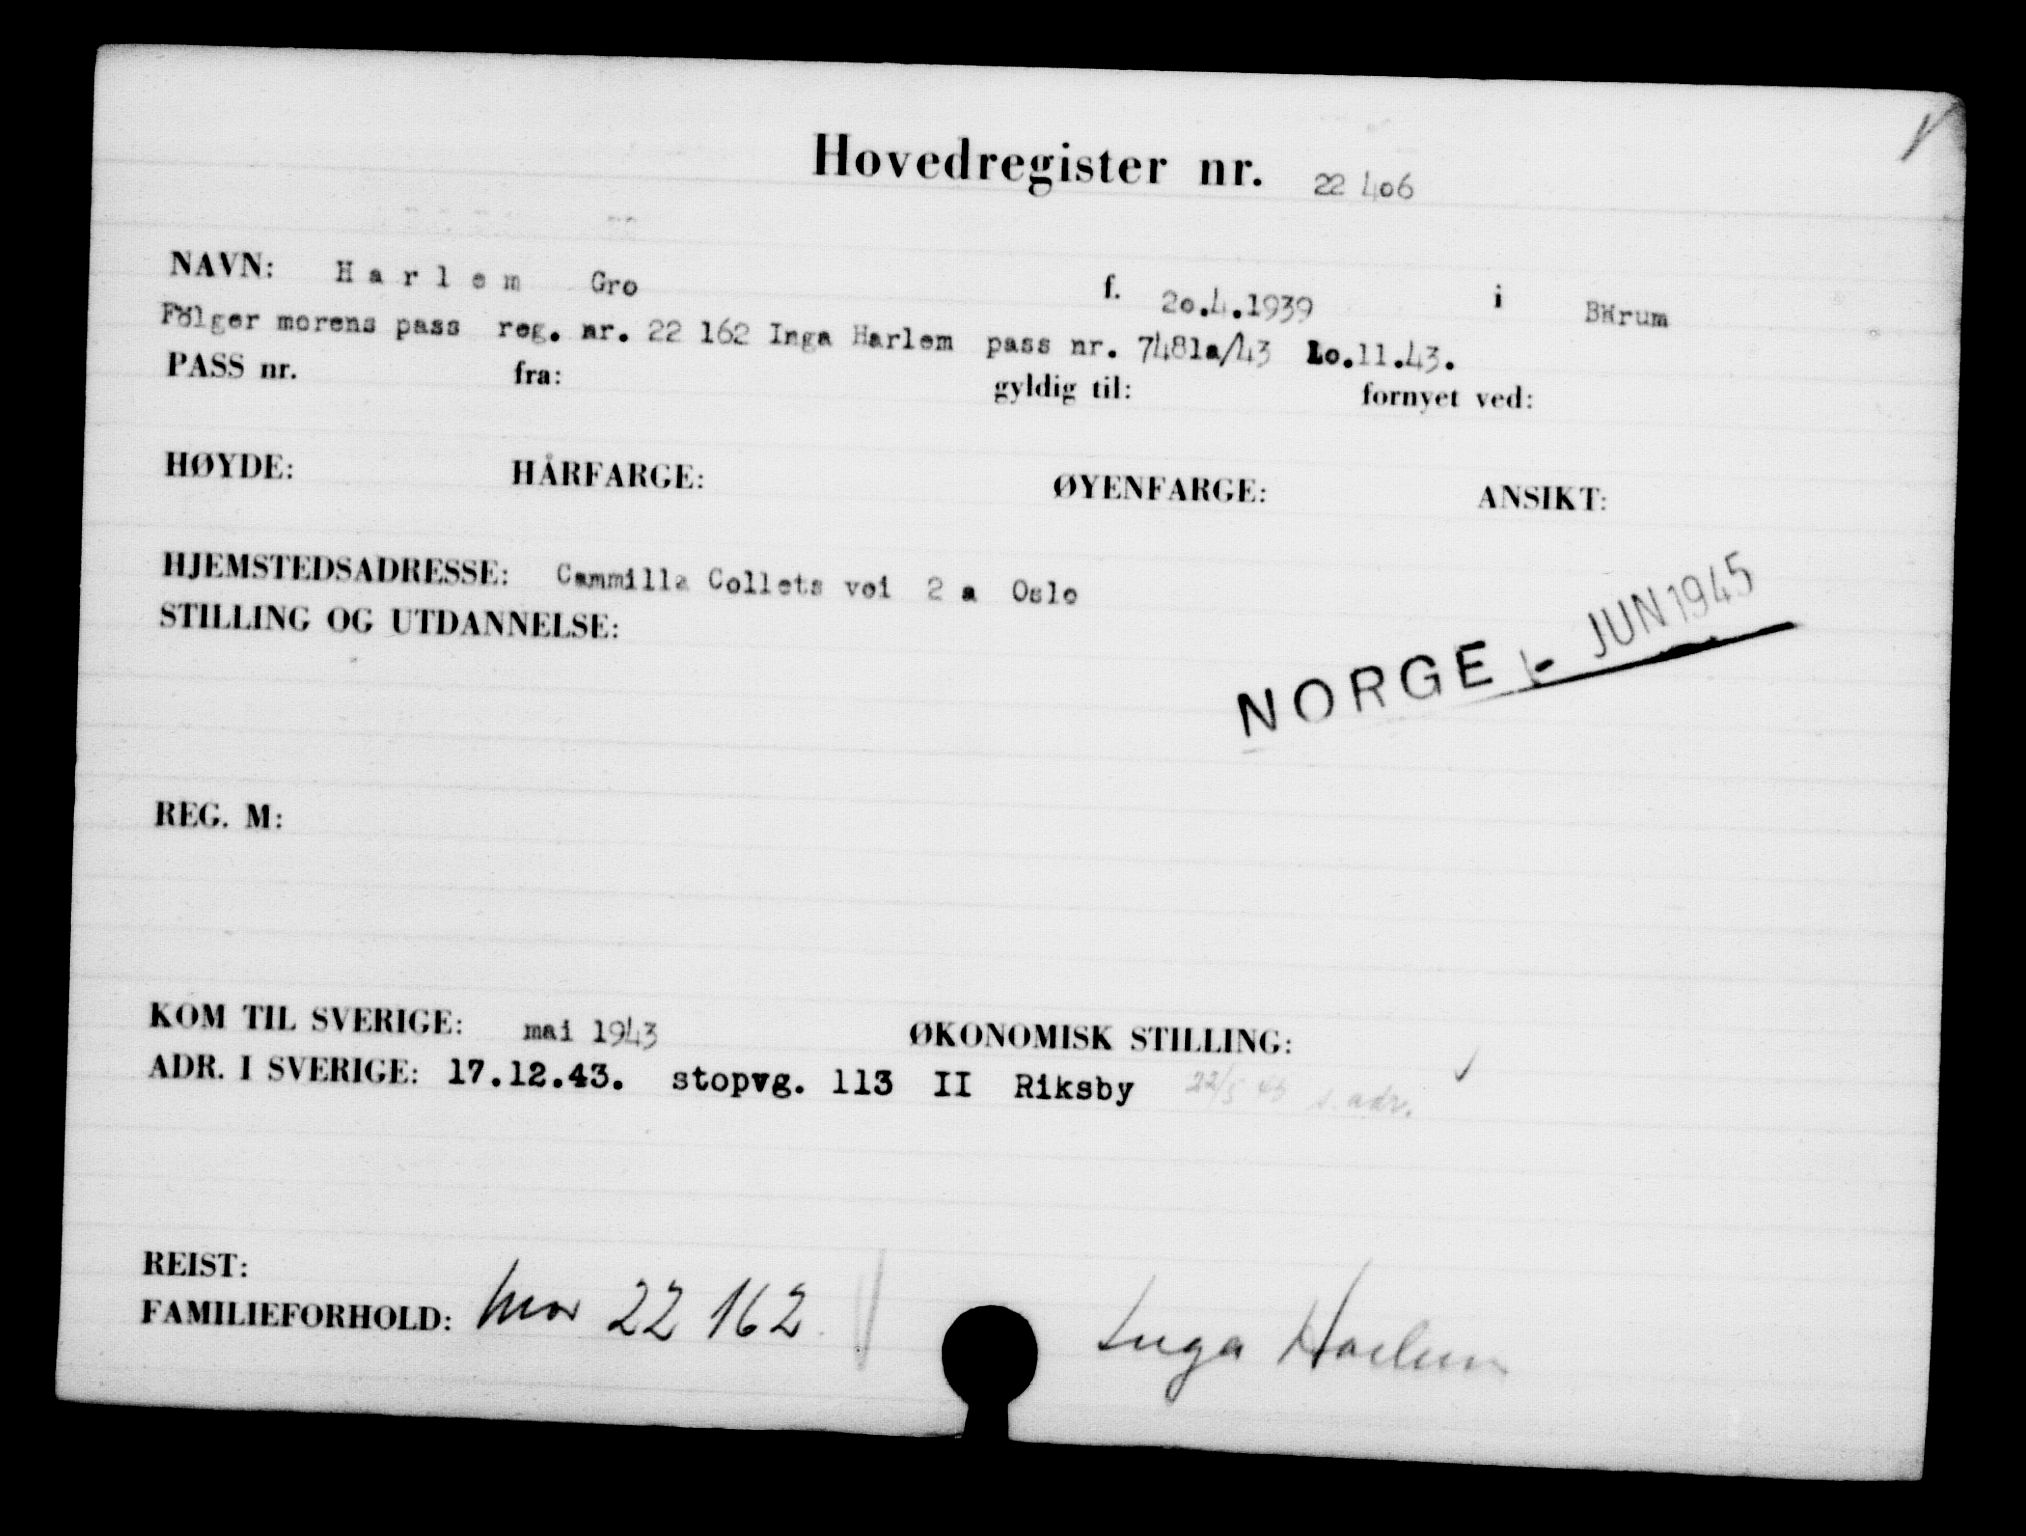 Hovedregister nr. 22 4o6
NAVN: Harlem Gro f. 2o.4.1939 i BÄrum
Fölger morens pass reg. nr. 22 162 Inga Harlem pass nr. 7481a/43 1o.11.43.
PASS nr. fra: gyldig til: fornyet ved:
HØYDE: HÅRFARGE: ØYENFARGE: ANSIKT:
HJEMSTEDSADRESSE: Cammilla Collets vei 2 a Oslo
STILLING OG UTDANNELSE:
NORGE - JUN 1945
REG. M:
KOM TIL SVERIGE: mai 1943 ØKONOMISK STILLING:
ADR. I SVERIGE: 17.12.43. stopvg. 113 II Riksby s. adr.
REIST:
FAMILIEFORHOLD: Mor 22 162 Inga Harlem